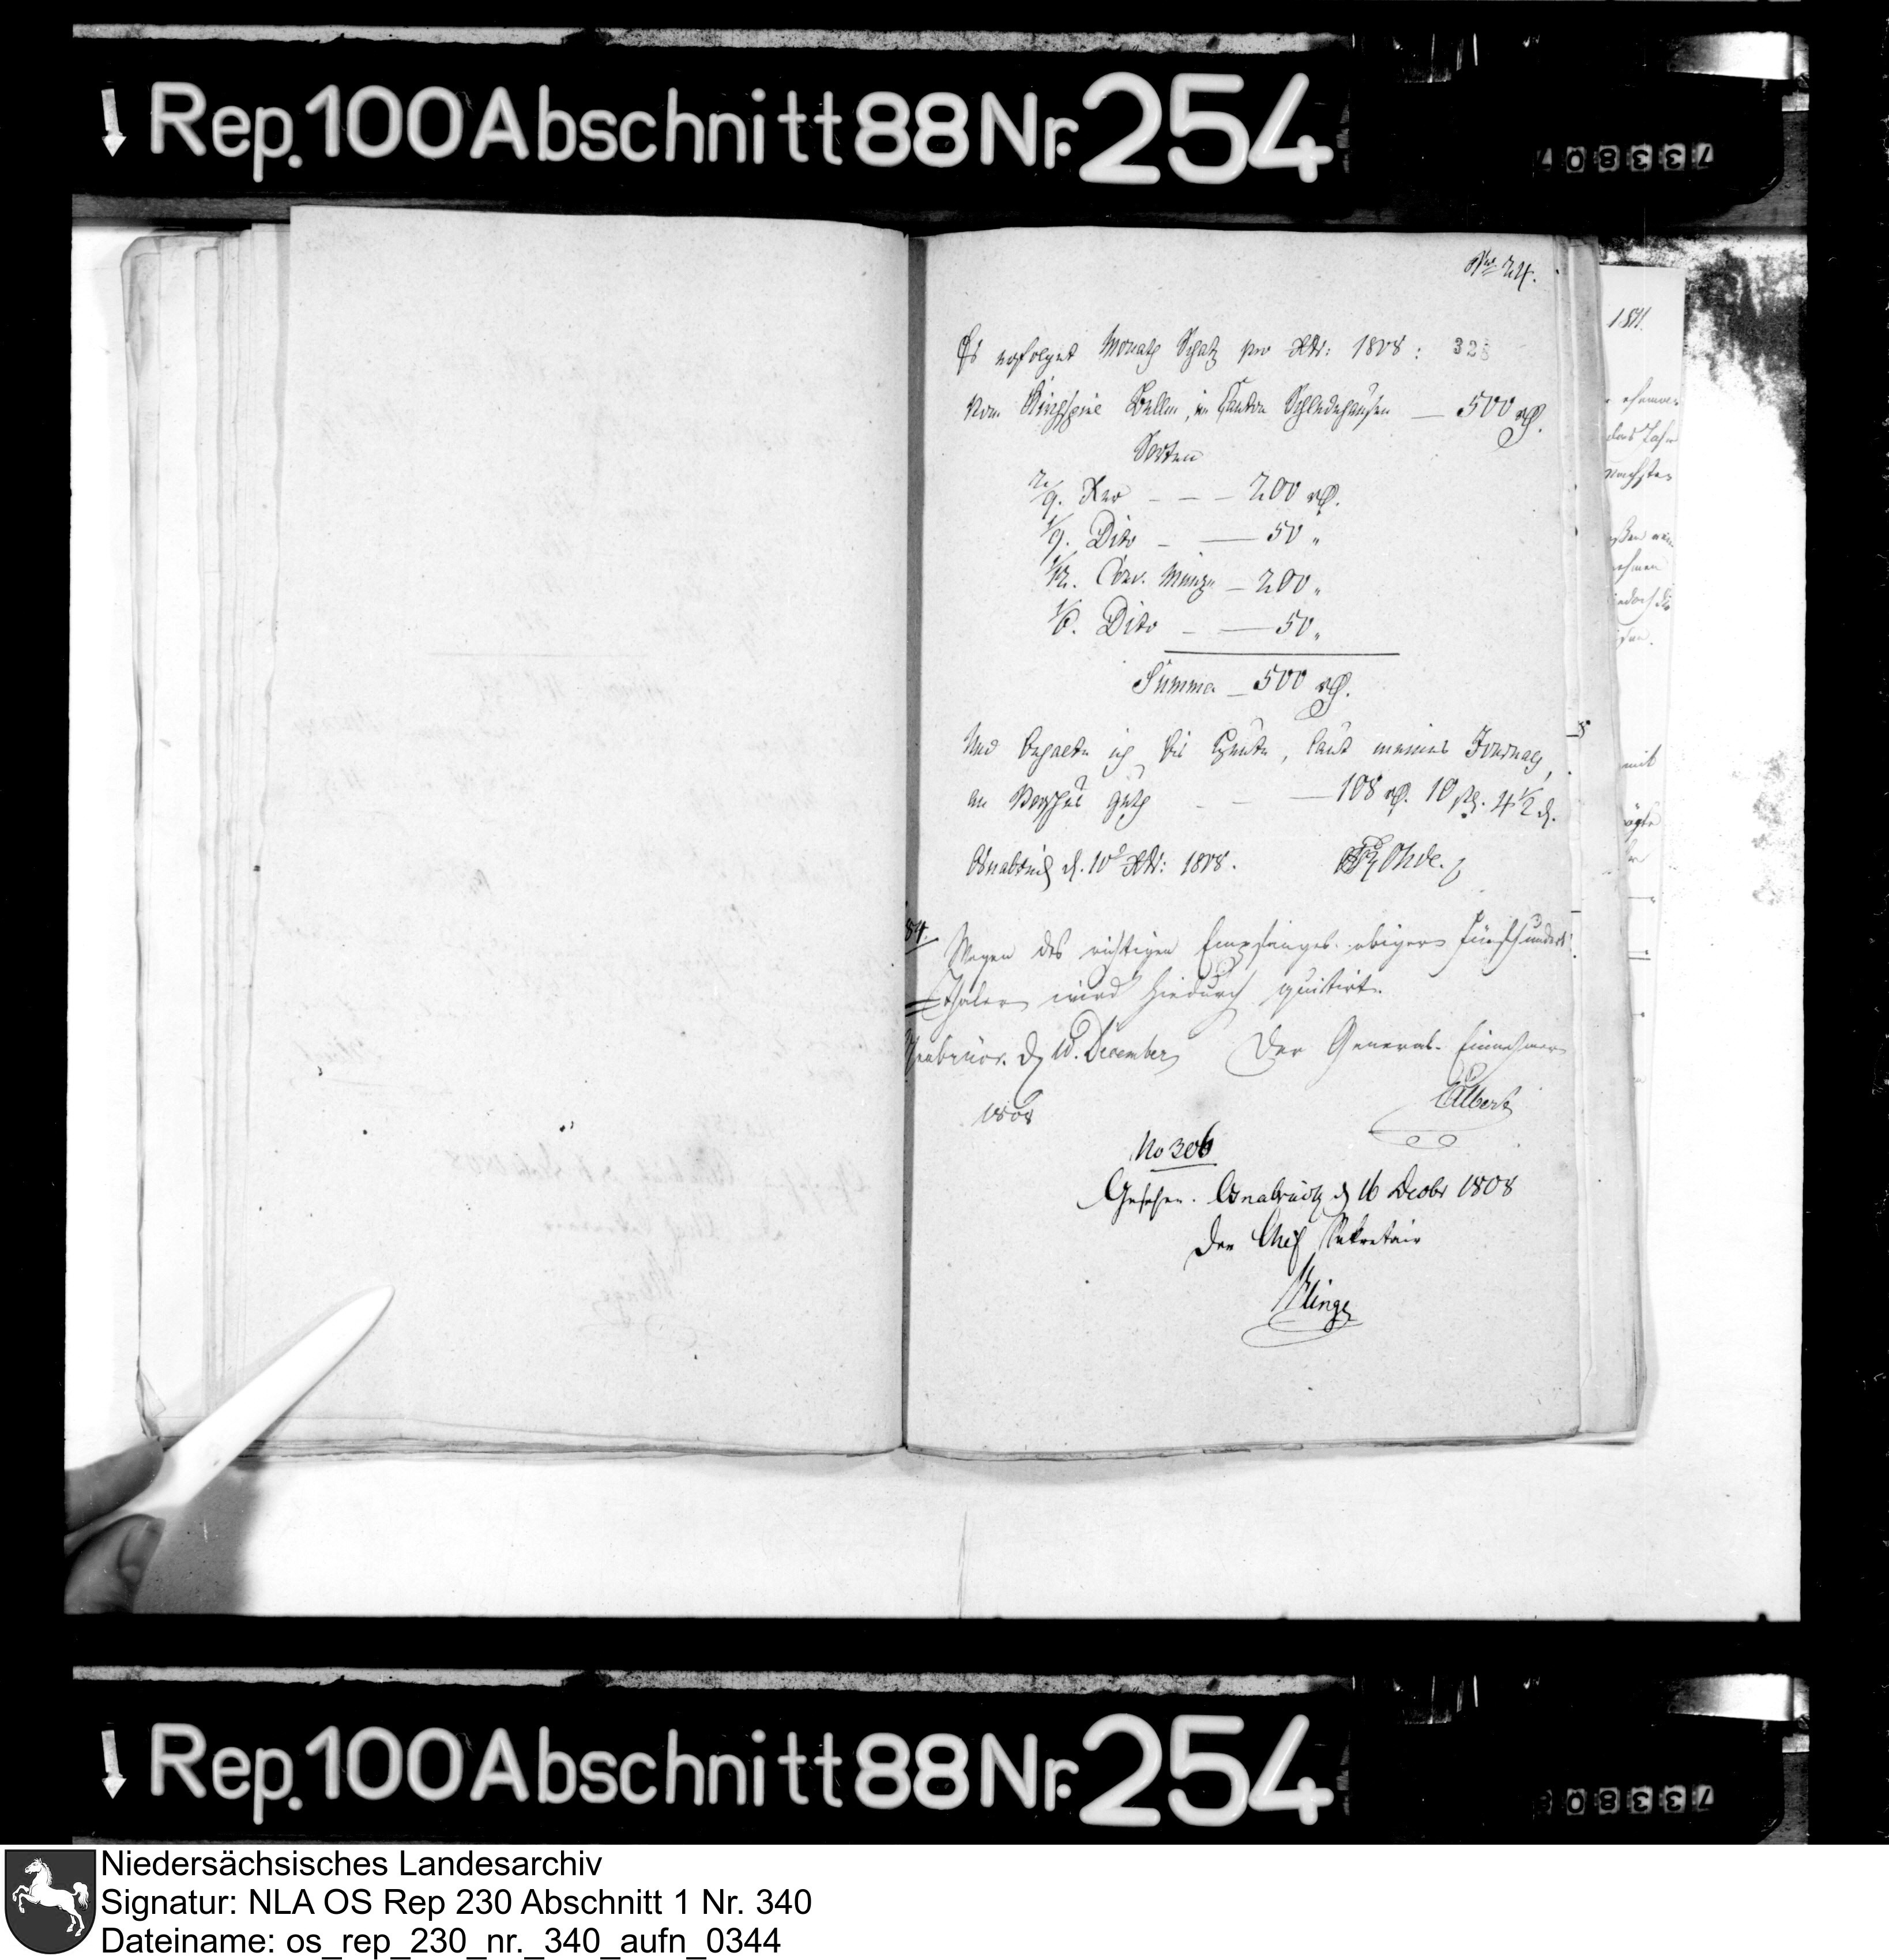 Rep. 100 Abschnitt 88 Nr. 254
No. 24.
Es erfolget Monath Schatz pro Xbr: 1808: 328
Vom Kirchspiel Bellm, im Canton Schledehausen — 500 rth.
Sorten
2/9. - - - 200 rth.
1/9. Dito - — 50 "
1/12. Conv. Münze - 200 "
1/6. Dito - — 50 "
Summa - 500 rth.
Und behalte ich bis heute, laut meines Journals,
an Vorschus guth - - — 108 rth. 10 ßl. 4 1/2 d.
Osnabrück d. 10t Xbr: 1808.
84. Wegen des richtigen Empfanges obiger Fünfhundert
Thaler wird hiedurch quittirt.
d 10. December Der General-Einnehmer
1808 Albers
No 306
Gesehen. Osnabrück d 16 Decbr 1808
Der Chef Sekretair
Klinge
1811.
mit
Rep. 100 Abschnitt 88 Nr. 254
Niedersächsisches Landesarchiv
Signatur: NLA OS Rep 230 Abschnitt 1 Nr. 340
Dateiname: os_rep_230_nr._340_aufn_0344